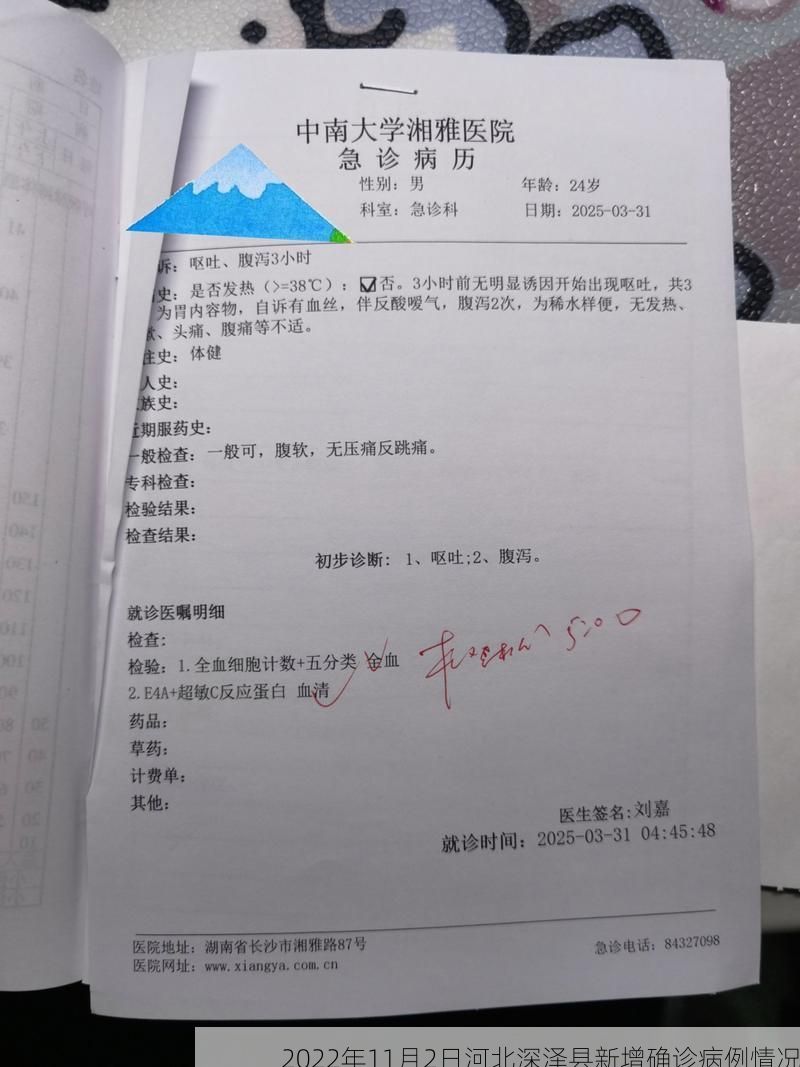 中南大学湘雅医院
急诊病历
性别：男 年龄：24岁
科室：急诊科 日期：2025-03-31
诉：呕吐、腹泻3小时
史：是否发热（>=38℃）：☑否。3小时前无明显诱因开始出现呕吐，共3
为胃内容物，自诉有血丝，伴反酸嗳气，腹泻2次，为稀水样便，无发热、
、头痛、腹痛等不适。
往史：体健
人史：
族史：
近期服药史：
一般检查：一般可，腹软，无压痛反跳痛。
专科检查：
检验结果：
检查结果：
初步诊断：1、呕吐;2、腹泻。
就诊医嘱明细
检查：
检验：1.全血细胞计数+五分类 全血
2.E4A+超敏C反应蛋白 血清
5:00
药品：
草药：
计费单：
其他：
医生签名:刘嘉
就诊时间：2025-03-31 04:45:48
医院地址：湖南省长沙市湘雅路87号 急诊电话：84327098
医院网址：www.xiangya.com.cn
2022年11月2日河北深泽县新增确诊病例情况